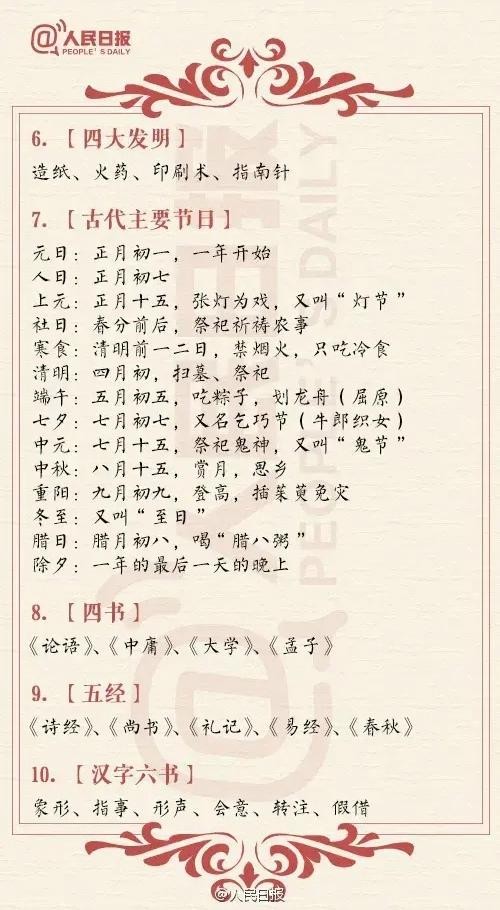 人民日报
PEOPLE'S DAILY
6.【四大发明】
造纸、火药、印刷术、指南针
7.【古代主要节日】
元日：正月初一，一年开始
人日：正月初七
上元：正月十五，张灯为戏，又叫“灯节”
社日：春分前后，祭祀祈祷农事
寒食：清明前一二日，禁烟火，只吃冷食
清明：四月初，扫墓、祭祀
端午：五月初五，吃粽子，划龙舟（屈原）
七夕：七月初七，又名乞巧节（牛郎织女）
中元：七月十五，祭祀鬼神，又叫“鬼节”
中秋：八月十五，赏月，思乡
重阳：九月初九，登高，插茱萸免灾
冬至：又叫“至日”
腊日：腊月初八，喝“腊八粥”
除夕：一年的最后一天的晚上
8.【四书】
《论语》、《中庸》、《大学》、《孟子》
9.【五经】
《诗经》、《尚书》、《礼记》、《易经》、《春秋》
10.【汉字六书】
象形、指事、形声、会意、转注、假借
@人民日报
人民日报
PEOPLE'S DAILY